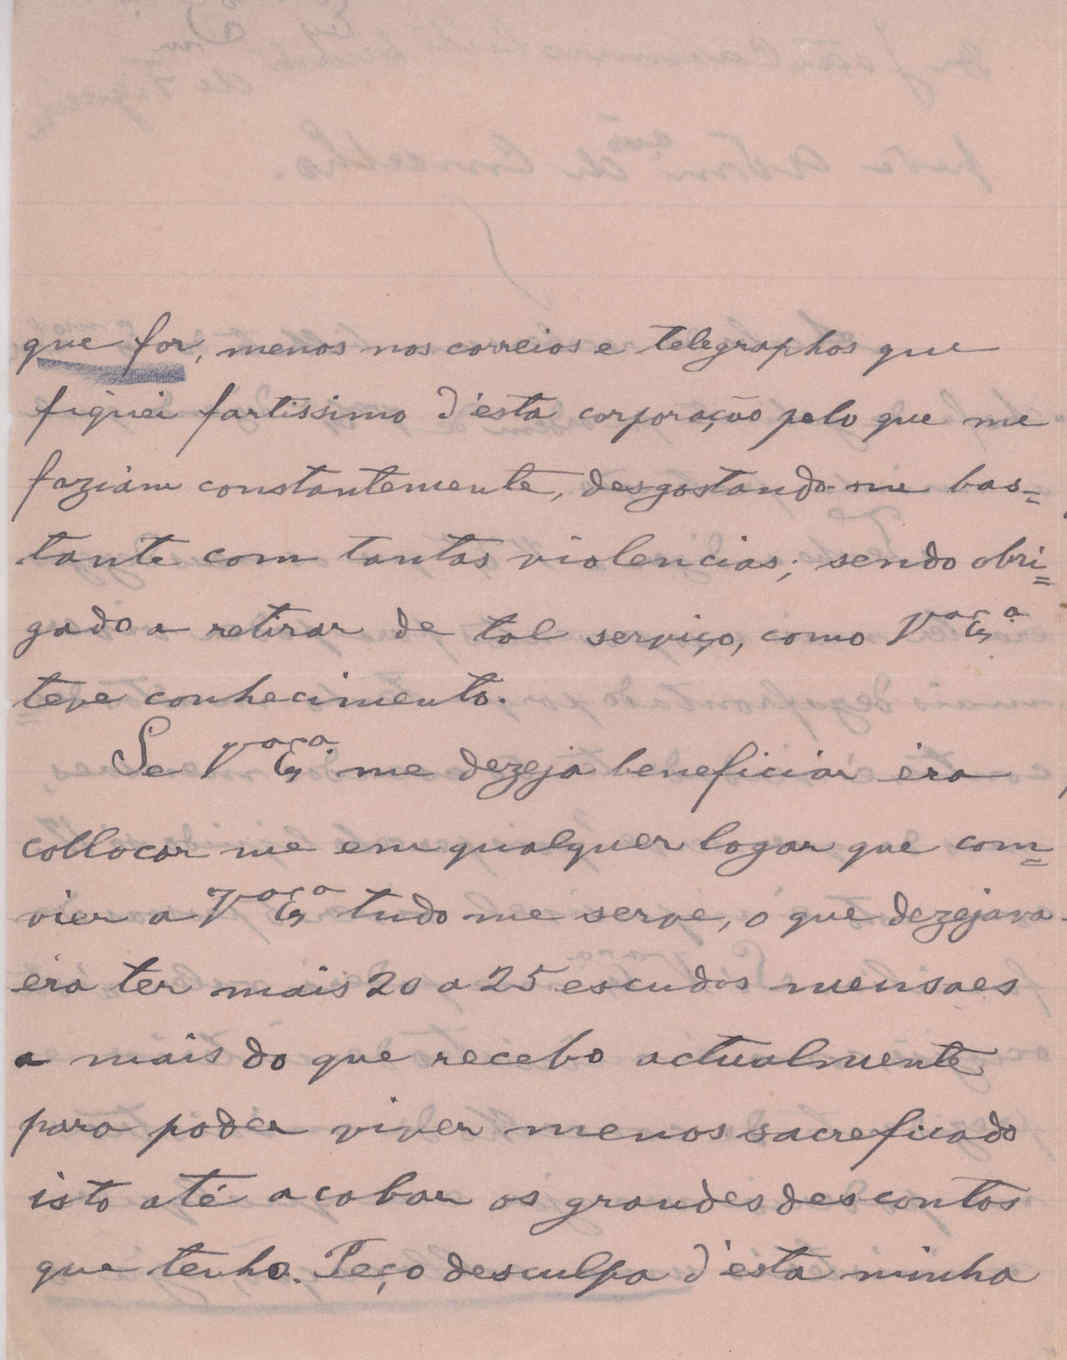 que for, menos nos correios e telegraphos que
fiquei fartissimo d'esta corporação pelo que me
faziam constantemente, desgostando-me bas=
tante com tantas violencias; sendo obri=
gado a retirar de tal serviço, como Vª Exª
teve conhecimento.
Se Vª Exª me dezeja beneficiar éra
collocar me em qualquer logar que com=
vier a Vª Exª tudo me serve, o que dezejava
éra ter mais 20 a 25 escudos mensaes
a mais do que recebo actualmente
para poder viver menos sacreficado
isto até acabar os grandes descontos
que tenho. Peço desculpa d'esta minha